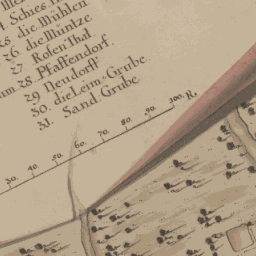 25 die Mühlen
26 die Müntze
27 Rosen Thal.
28. Pfaffendorf.
29 Neudorff
30. die Leim-Grube
31. Sand Grube
30. 40. 50. 60. 70. 80. 90. 100. R.